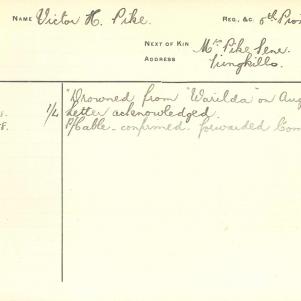 NAME Victor H. Pike. REG., &C., 5th Pro
NEXT OF KIN Mr. Pike Senr.
ADDRESS Pingkillo.
"Drowned from "Warilda" on Aug
1/4 Letter acknowledged.
8. P/Cable - confirmed. forwarded Com